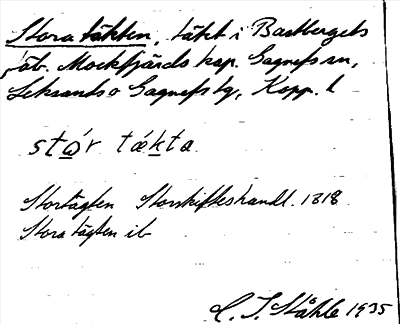 Stora täkten, täkt i Bastbergets
fäb. Mockfjärds kap. Gagnefs sn,
Leksands o Gagnefs tg, Kopp. l
stώ̲r tǽk̲ta
Stortägten Storskifteshandl. 1818
Stora tägten ib
C. I. Ståhle 1935